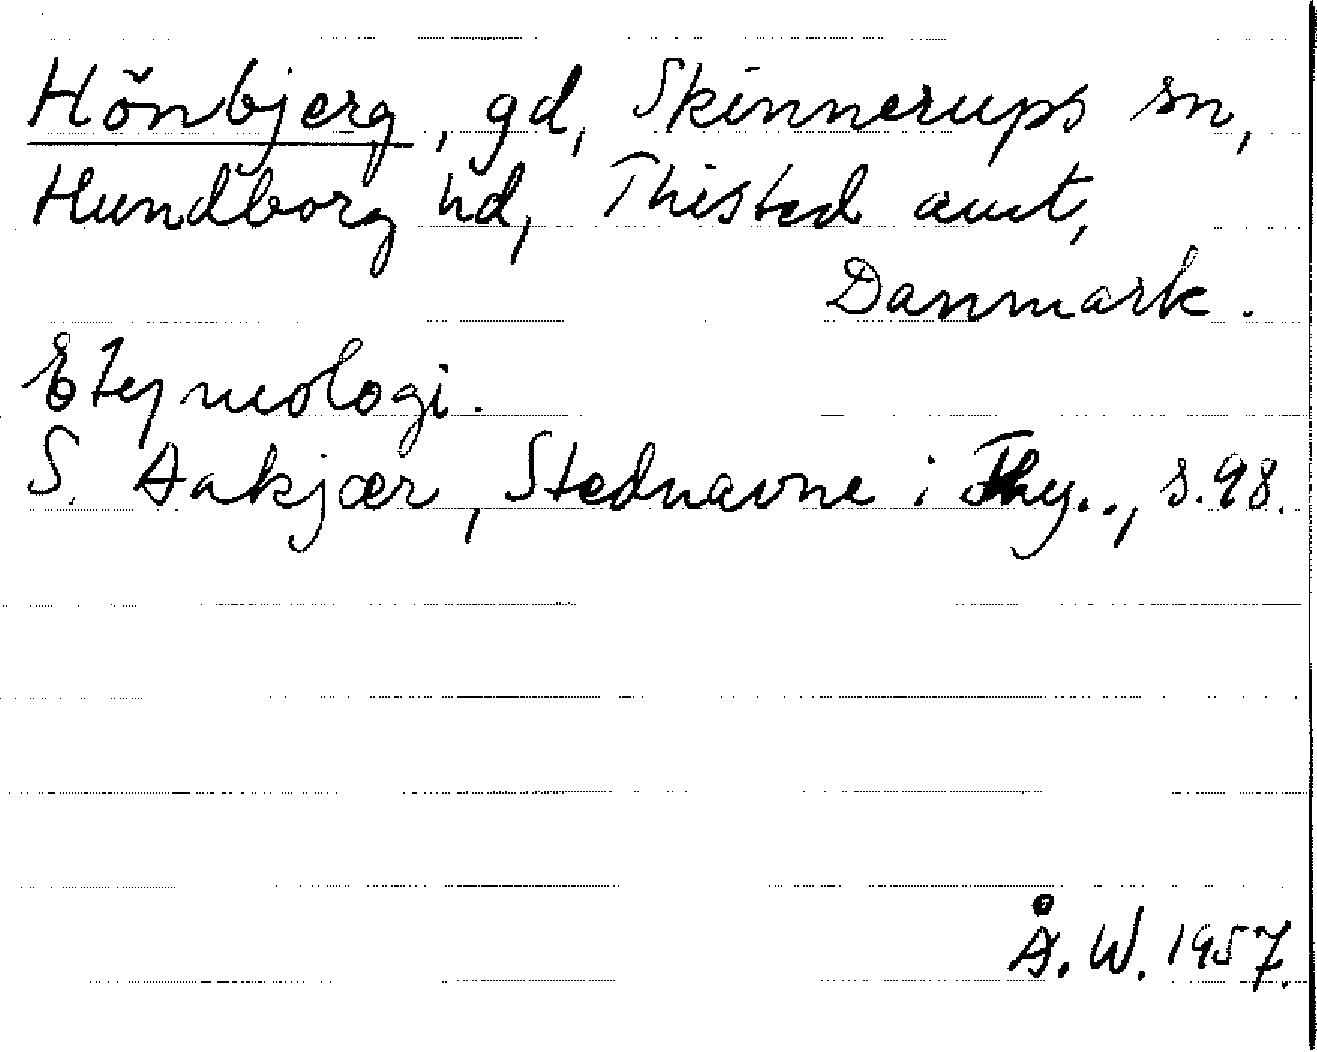 Hönbjerg, gd, Skinnerups sn,
Hundborg hd, Thisted amt,
Danmark.
Etymologi.
S. Aakjær, Stednavne i Thy.., s.98.
Å.W. 1957.